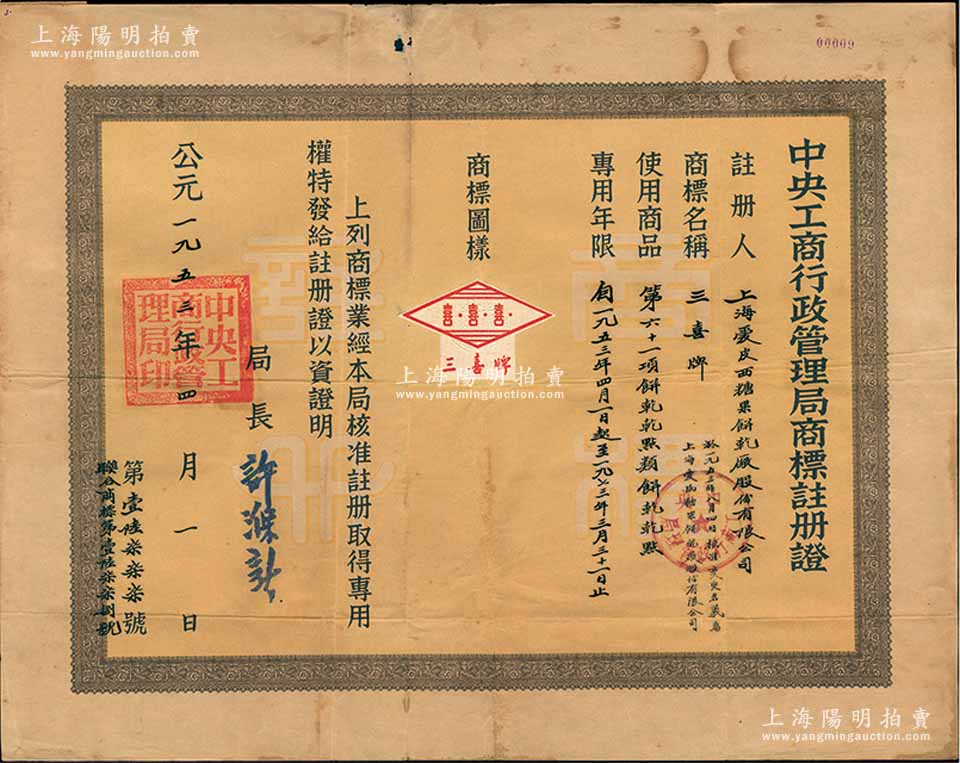 中央工商行政管理局商標註册證
註册人 上海愛皮西糖果餅乾廠股份有限公司
商標名稱 三喜牌
使用商品 第六十一項餅乾乾點類餅乾乾點
專用年限 自一九五三年四月一日起至一九七三年三月三十一日止
商標圖樣
喜·喜·喜
三喜牌
上列商標業經本局核准註册取得專用
權特發給註册證以資證明
局長 許滌新
公元一九五三年四月一日
中央工
商行政管
理局印
第壹陸柒柒柒號
聯合商標第壹陸柒柒捌號
00009
上海陽明拍賣
www.yangmingauction.com
上海陽明拍賣
www.yangmingauction.com
上海陽明拍賣
www.yangmingauction.com
上海陽明拍賣
www.yangmingauction.com